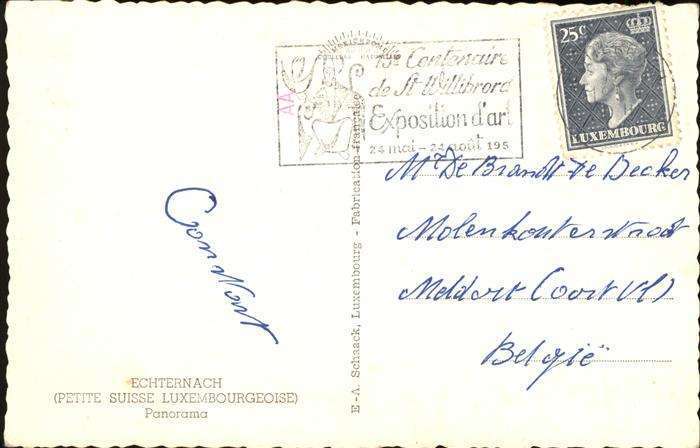 13e Centenaire
de St Willibrord
Exposition d'art
24 mai - 24 août 195
25c
LUXEMBOURG
AA
Mr De Brandt-De Decker
Molenkouterstraat
Meldert (Oost Vl)
België
ECHTERNACH
(PETITE SUISSE LUXEMBOURGEOISE)
Panorama
E-A. Schaack, Luxembourg - Fabrication française